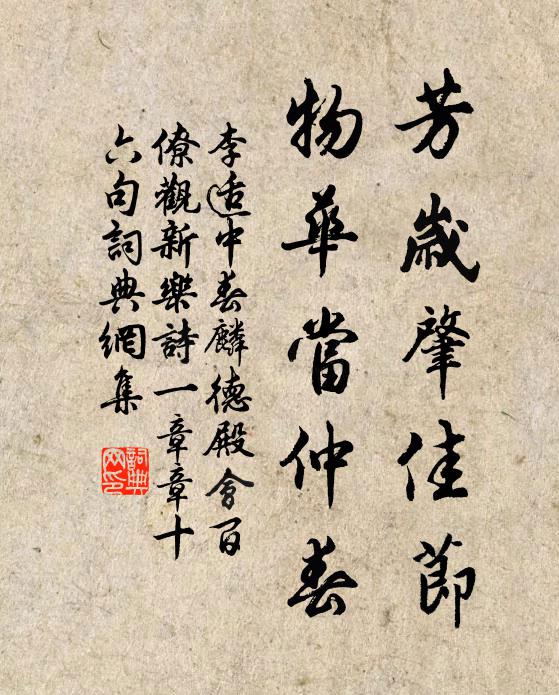 芳歲肇佳節
物華當仲春
李适中春麟德殿會百
僚觀新樂詩一章章十
六句詞典網集
詞典网印